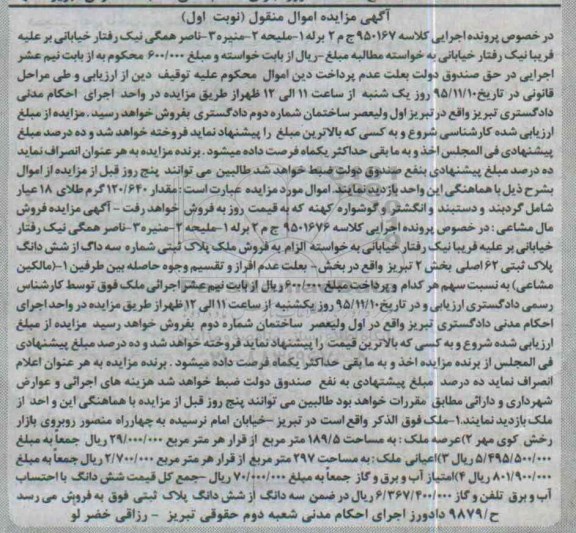 آگهی مزایده اموال منقول (نوبت اول)
در خصوص پرونده اجرایی کلاسه ۹۵۰۱۶۷ ج م ۲ برله ۱-ملیحه ۲-منیره ۳-ناصر همگی نیک رفتار خیابانی بر علیه
فریبا نیک رفتار خیابانی به خواسته مطالبه مبلغ -ریال از بابت خواسته و مبلغ ۶۰۰/۰۰۰ محکوم به از بابت نیم عشر
اجرایی در حق صندوق دولت بعلت عدم پرداخت دین اموال محکوم علیه توقیف دین از ارزیابی و طی مراحل
قانونی در تاریخ ۹۵/۱۱/۱۰ روز یک شنبه از ساعت ۱۱ الی ۱۲ ظهراز طریق مزایده در واحد اجرای احکام مدنی
دادگستری تبریز واقع در تبریز اول ولیعصر ساختمان شماره دوم دادگستری بفروش خواهد رسید. مزایده از مبلغ
ارزیابی شده کارشناسی شروع و به کسی که بالاترین مبلغ را پیشنهاد نماید فروخته خواهد شد و ده درصد مبلغ
پیشنهادی فی المجلس اخذ و به ما بقی حداکثر یکماه فرصت داده میشود. برنده مزایده به هر عنوان انصراف نماید
ده درصد مبلغ پیشنهادی بنفع صندوق دولت ضبط خواهد شد طالبین می توانند پنج روز قبل از مزایده از اموال
بشرح ذیل با هماهنگی این واحد بازدید نمایند. اموال مورد مزایده عبارت است: مقدار ۱۲۰/۶۴۰ گرم طلای ۱۸ عیار
شامل گردبند و دستبند و انگشتر و گوشواره کهنه که به قیمت روز به فروش خواهد رفت - آگهی مزایده فروش
مال مشاعی: در خصوص پرونده اجرایی کلاسه ۹۵۰۱۶۷۶ ج م ۲ برله ۱-ملیحه ۲-منیره ۳-ناصر همگی نیک رفتار
خیابانی بر علیه فریبا نیک رفتار خیابانی به خواسته الزام به فروش ملک پلاک ثبتی شماره سه داگ از شش دانگ
پلاک ثبتی ۶۲ اصلی بخش ۲ تبریز واقع در بخش- بعلت عدم افراز و تقسیم وجوه حاصله بین طرفین ۱-(مالکین
مشاعی) به نسبت سهم هر کدام و پرداخت مبلغ ۶۰۰/۰۰۰ ریال از بابت نیم عشر اجرائی ملک فوق توسط کارشناس
رسمی دادگستری ارزیابی و در تاریخ ۹۵/۱۱/۱۰ روز یکشنبه از ساعت ۱۱ الی ۱۲ ظهراز طریق مزایده در واحد اجرای
احکام مدنی دادگستری تبریز واقع در اول ولیعصر ساختمان شماره دوم بفروش خواهد رسید مزایده از مبلغ
ارزیابی شده شروع و به کسی که بالاترین قیمت را پیشنهاد نماید فروخته خواهد شد و ده درصد مبلغ پیشنهادی
فی المجلس از برنده مزایده اخذ و به ما بقی حداکثر یکماه فرصت داده میشود. برنده مزایده به هر عنوان اعلام
انصراف نماید ده درصد مبلغ پیشتهادی به نفع صندوق دولت ضبط خواهد شد هزینه های اجرائی و عوارض
شهرداری و دارائی مطابق مقررات خواهد بود طالبین می توانند پنج روز قبل از مزایده با هماهنگی این و احد از
ملک بازدید نمایند.۱-ملک فوق الذکر واقع است در تبریز -خیابان امام نرسیده به چهارراه منصور روبروی بازار
رخش کوی مهر ۲)عرصه ملک: به مساحت ۱۸۹/۵ متر مربع از قرار هر متر مربع ۲۹/۰۰۰/۰۰۰ ریال جمعاً به مبلغ
۵/۴۹۵/۵۰۰/۰۰۰ ریال ۳)اعیانی ملک: به مساحت ۲۹۷ متر مربع از قرار هر متر مربع ۲/۷۰۰/۰۰۰ ریال جمعاً به مبلغ
۸۰۱/۹۰۰/۰۰۰ ریال ۴)امتیاز آب و برق و گاز جمعاً به مبلغ ۷۰/۰۰۰/۰۰۰ ریال -جمع کل قیمت شش دانگ با احتساب
آب و برق تلفن و گاز ۶/۳۶۷/۴۰۰/۰۰۰ ریال در ضمن سه دانگ از شش دانگ پلاک ثبتی فوق به فروش می رسد
ح/۹۸۷۹ دادورز اجرای احکام مدنی شعبه دوم حقوقی تبریز - رزاقی خضر لو